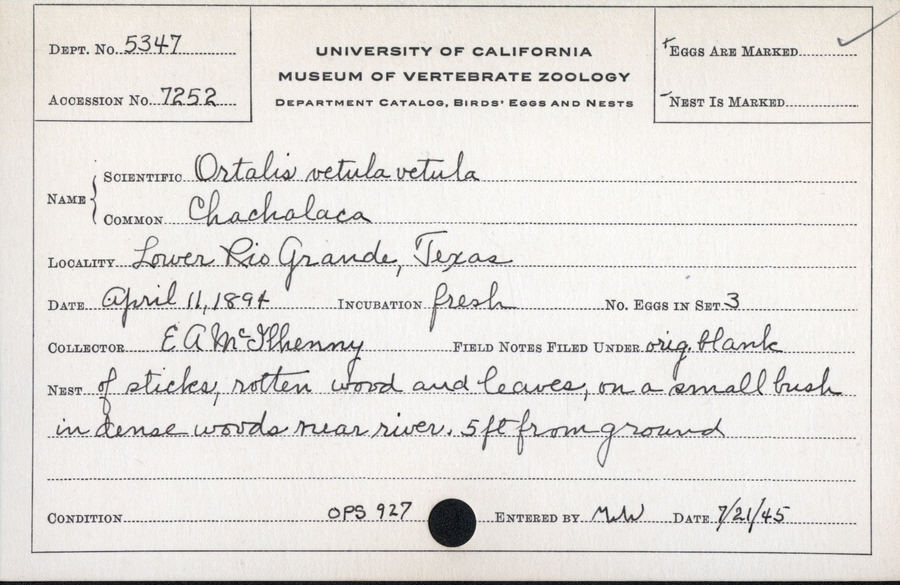 DEPT. No. 5347
UNIVERSITY OF CALIFORNIA
MUSEUM OF VERTEBRATE ZOOLOGY
DEPARTMENT CATALOG, BIRDS' EGGS AND NESTS
+ EGGS ARE MARKED ✓
ACCESSION No. 7252
- NEST IS MARKED
NAME { SCIENTIFIC Ortalis vetula vetula
COMMON Chachalaca
LOCALITY Lower Rio Grande, Texas
DATE April 11, 1894 INCUBATION fresh NO. EGGS IN SET 3
COLLECTOR E A McIlhenny FIELD NOTES FILED UNDER orig. blank
NEST of sticks, rotten wood and leaves, on a small bush
in dense woods near river. 5 ft from ground
CONDITION OPS 927 ENTERED BY MW DATE 7/21/45